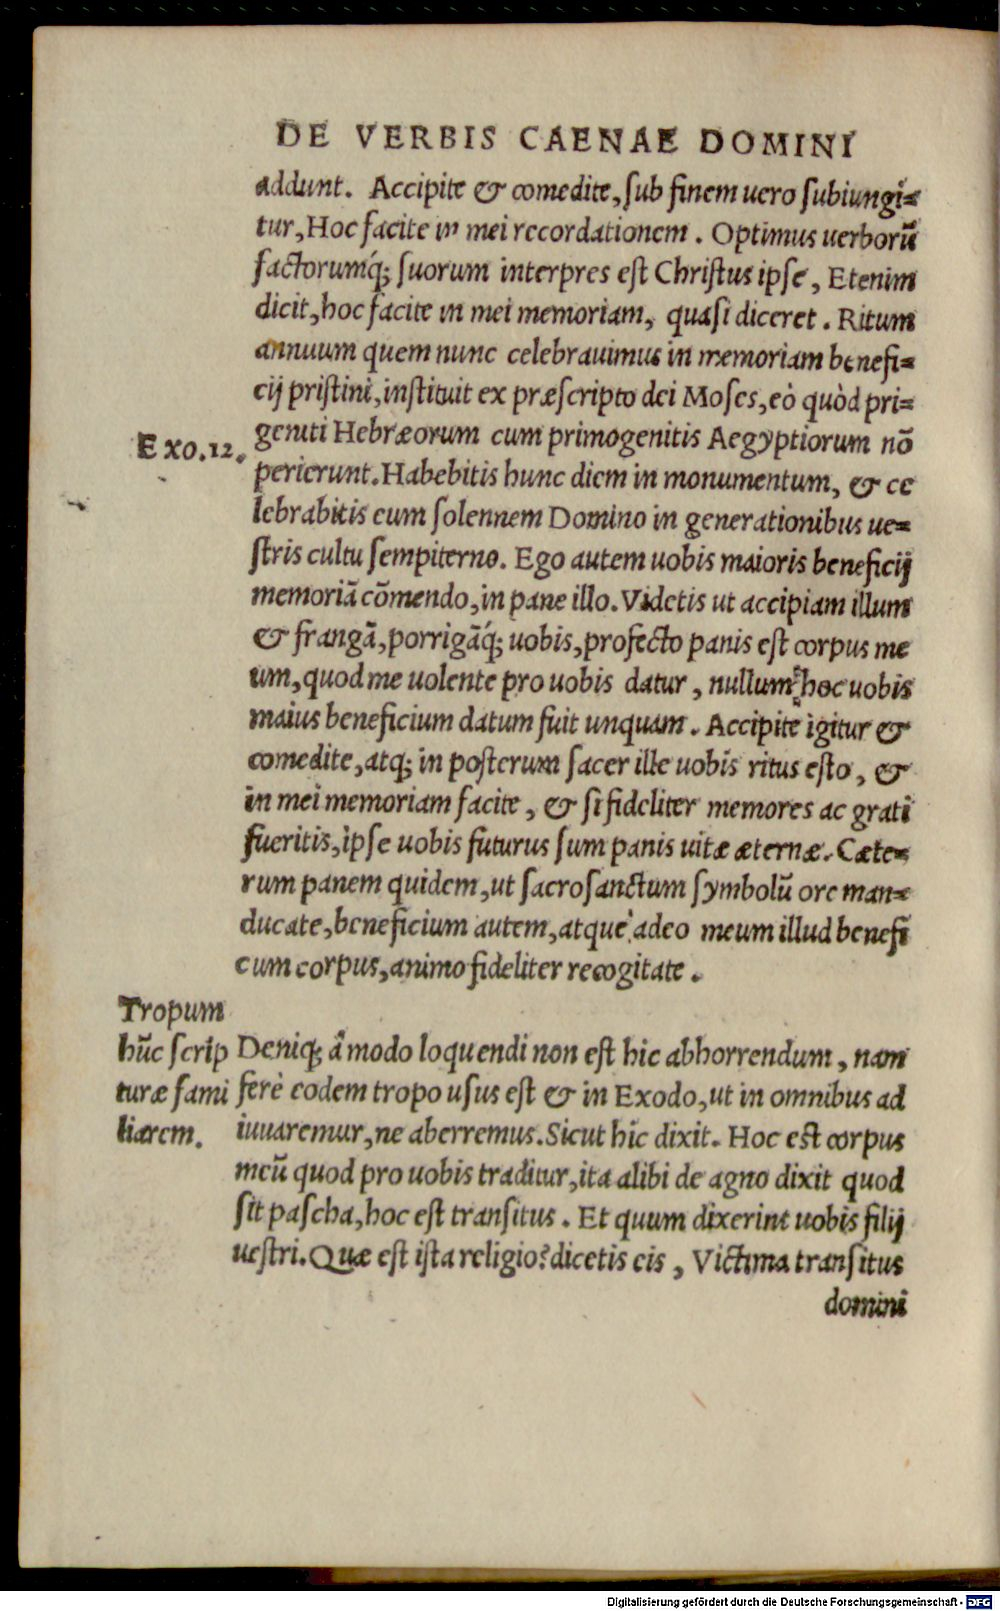 DE VERBIS CAENAE DOMINI
addunt. Accipite & comedite, ſub finem uero ſubiungi=
tur, Hoc facite in mei recordationem. Optimus uerborū
factorumq́; ſuorum interpres eſt Chriſtus ipſe, Etenim
dicit, hoc facite in mei memoriam, quaſi diceret. Ritum
annuum quem nunc celebrauimus in memoriam benefi=
cij priſtini, inſtituit ex præſcripto dei Moſes, eò quòd pri=
Exo.12.
geniti Hebræorum cum primogenitis Aegyptiorum nō
perierunt. Habebitis hunc diem in monumentum, & ce
lebrabitis eum ſolennem Domino in generationibus ue=
ſtris cultu ſempiterno. Ego autem uobis maioris beneficij
memoriā cōmendo, in pane illo. Videtis ut accipiam illum
& frangā, porrigāq́; uobis, profecto panis eſt corpus me
um, quod me uolente pro uobis datur, nullum hoc uobis
maius beneficium datum fuit unquam. Accipite igitur &
comedite, atq; in poſterum ſacer ille uobis ritus eſto, &
in mei memoriam facite, & ſi fideliter memores ac grati
fueritis, ipſe uobis futurus ſum panis uitæ æternæ. Cæte=
rum panem quidem, ut ſacroſanctum ſymbolū ore man=
ducate, beneficium autem, atque adeo meum illud benefi
cum corpus, animo fideliter recogitate.
Tropum
hūc ſcrip
turæ fami
liarem.
Deniq; à modo loquendi non eſt hic abhorrendum, nam
ferè eodem tropo uſus eſt & in Exodo, ut in omnibus ad
iuuaremur, ne aberremus. Sicut hîc dixit. Hoc eſt corpus
meū quod pro uobis traditur, ita alibi de agno dixit quod
ſit paſcha, hoc eſt tranſitus. Et quum dixerint uobis filij
ueſtri. Quæ eſt iſta religio? dicetis eis, Victima tranſitus
domini
Digitalisierung gefördert durch die Deutsche Forschungsgemeinschaft - DFG